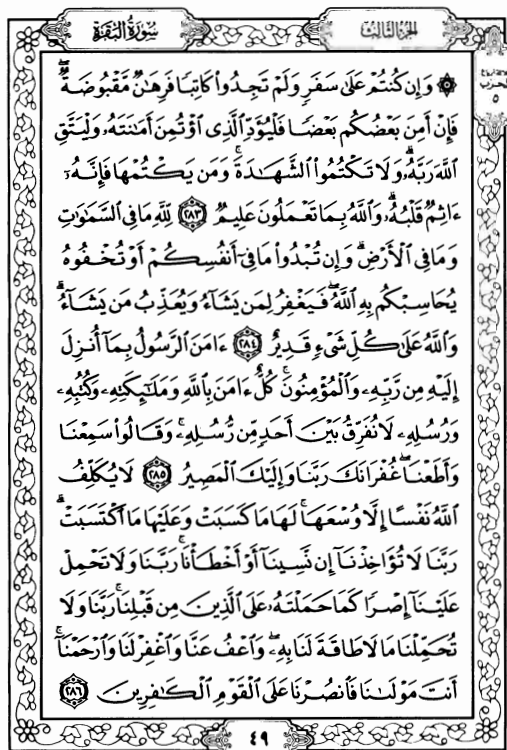 سُورَةُ البَقَرَةِ
الجُزءُ الثَّالِثُ
۞ وَإِن كُنتُمْ عَلَىٰ سَفَرٍ وَلَمْ تَجِدُوا۟ كَاتِبًا فَرِهَٰنٌ مَّقْبُوضَةٌ ۖ
فَإِنْ أَمِنَ بَعْضُكُم بَعْضًا فَلْيُؤَدِّ ٱلَّذِى ٱؤْتُمِنَ أَمَٰنَتَهُۥ وَلْيَتَّقِ
ٱللَّهَ رَبَّهُۥ ۗ وَلَا تَكْتُمُوا۟ ٱلشَّهَٰدَةَ ۚ وَمَن يَكْتُمْهَا فَإِنَّهُۥٓ
ءَاثِمٌ قَلْبُهُۥ ۗ وَٱللَّهُ بِمَا تَعْمَلُونَ عَلِيمٌ ٢٨٣ لِّلَّهِ مَا فِى ٱلسَّمَٰوَٰتِ
وَمَا فِى ٱلْأَرْضِ ۗ وَإِن تُبْدُوا۟ مَا فِىٓ أَنفُسِكُمْ أَوْ تُخْفُوهُ
يُحَاسِبْكُم بِهِ ٱللَّهُ ۖ فَيَغْفِرُ لِمَن يَشَآءُ وَيُعَذِّبُ مَن يَشَآءُ ۗ
وَٱللَّهُ عَلَىٰ كُلِّ شَىْءٍ قَدِيرٌ ٢٨٤ ءَامَنَ ٱلرَّسُولُ بِمَآ أُنزِلَ
إِلَيْهِ مِن رَّبِّهِۦ وَٱلْمُؤْمِنُونَ ۚ كُلٌّ ءَامَنَ بِٱللَّهِ وَمَلَٰٓئِكَتِهِۦ وَكُتُبِهِۦ
وَرُسُلِهِۦ لَا نُفَرِّقُ بَيْنَ أَحَدٍ مِّن رُّسُلِهِۦ ۚ وَقَالُوا۟ سَمِعْنَا
وَأَطَعْنَا ۖ غُفْرَانَكَ رَبَّنَا وَإِلَيْكَ ٱلْمَصِيرُ ٢٨٥ لَا يُكَلِّفُ
ٱللَّهُ نَفْسًا إِلَّا وُسْعَهَا ۚ لَهَا مَا كَسَبَتْ وَعَلَيْهَا مَا ٱكْتَسَبَتْ ۗ
رَبَّنَا لَا تُؤَاخِذْنَآ إِن نَّسِينَآ أَوْ أَخْطَأْنَا ۚ رَبَّنَا وَلَا تَحْمِلْ
عَلَيْنَآ إِصْرًا كَمَا حَمَلْتَهُۥ عَلَى ٱلَّذِينَ مِن قَبْلِنَا ۚ رَبَّنَا وَلَا
تُحَمِّلْنَا مَا لَا طَاقَةَ لَنَا بِهِۦ ۖ وَٱعْفُ عَنَّا وَٱغْفِرْ لَنَا وَٱرْحَمْنَآ ۚ
أَنتَ مَوْلَىٰنَا فَٱنصُرْنَا عَلَى ٱلْقَوْمِ ٱلْكَٰفِرِينَ ٢٨٦
الحزب
٥
٤٩